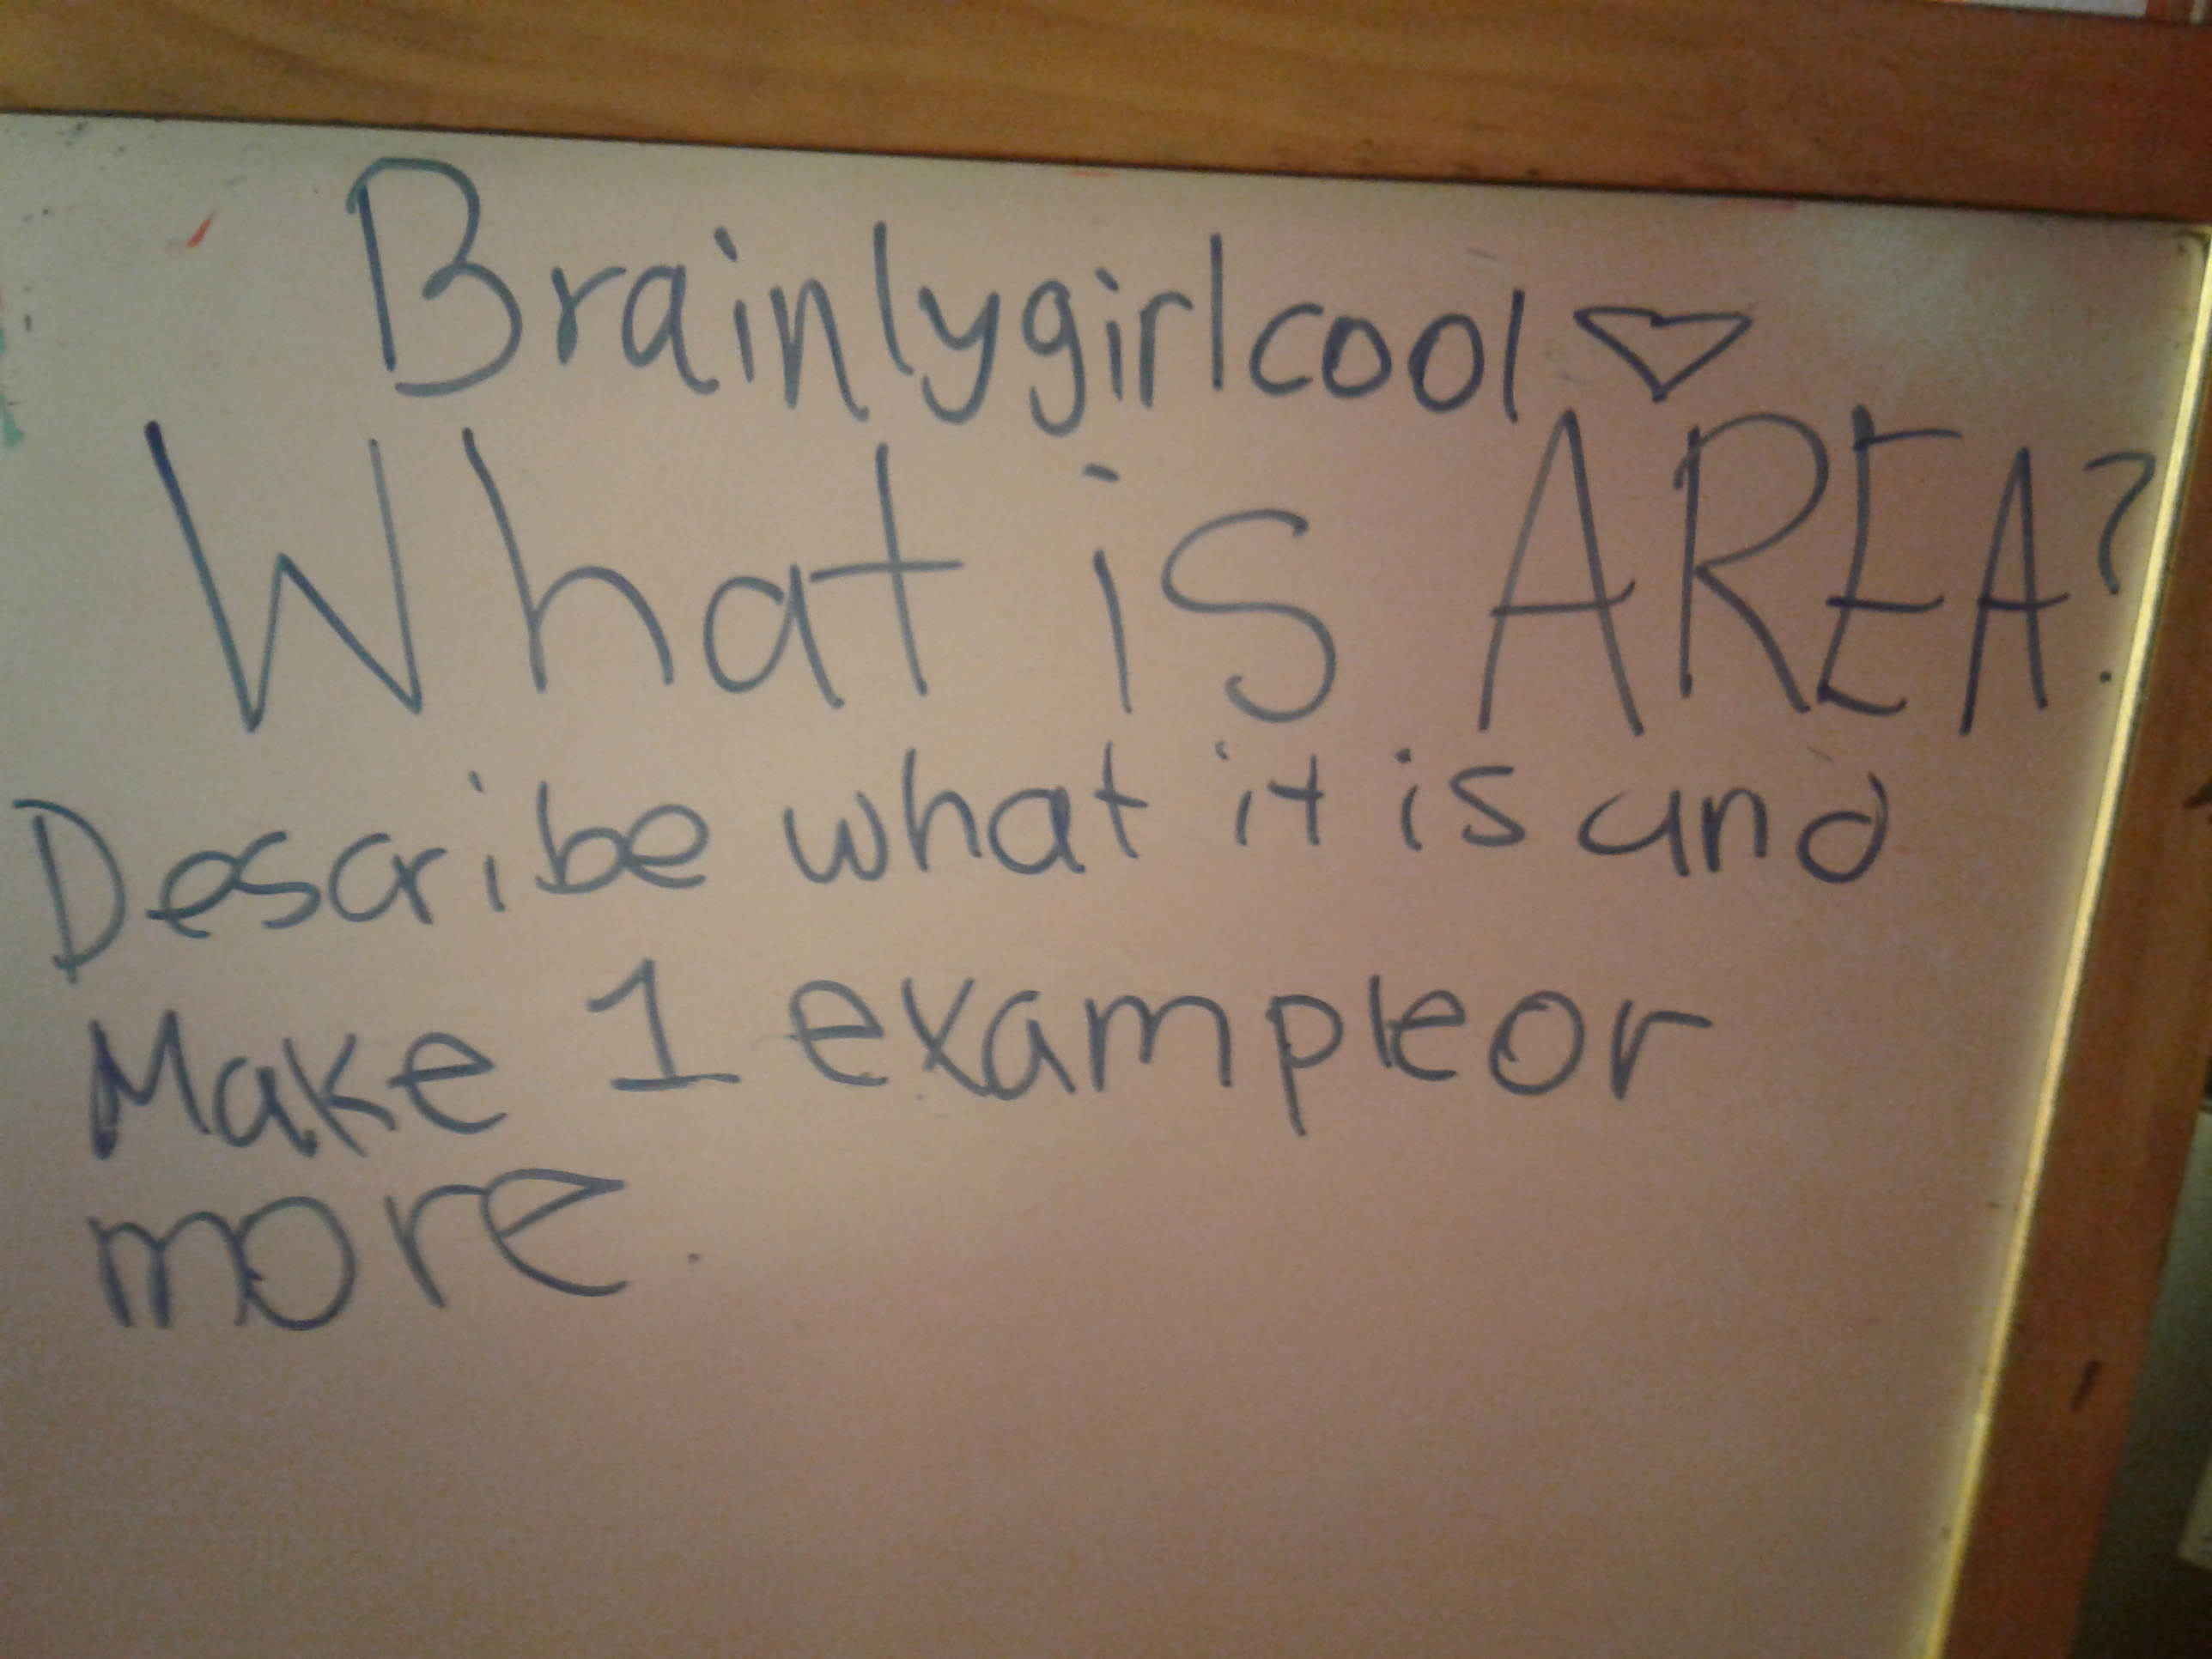 Brainlygirlcool
What is AREA?
Describe what it is and
Make 1 example or
more.